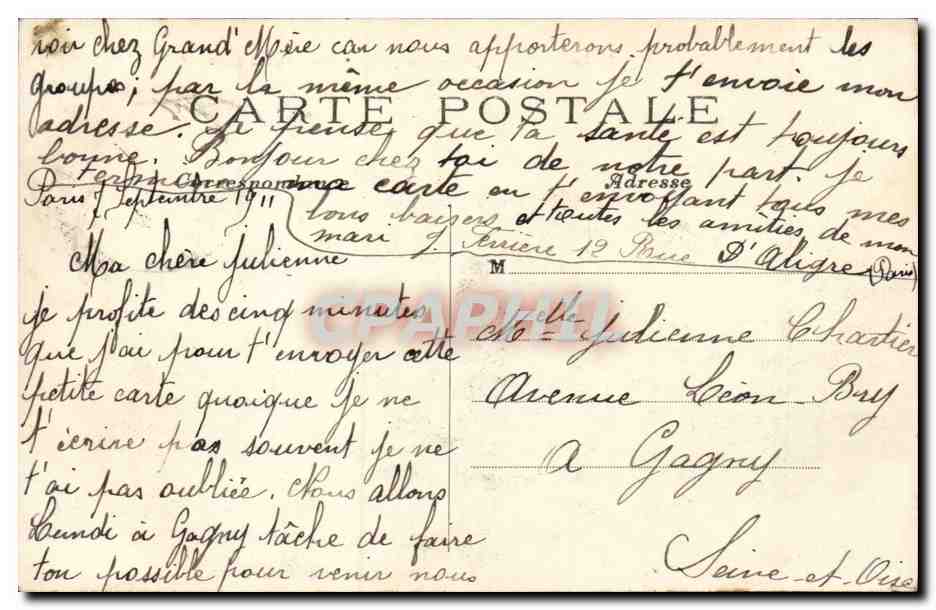 voir chez Grand'Mère car nous apporterons probablement les
groupes; par la même occasion je t'envoie mon
CARTE POSTALE
adresse. Je pense que ta santé est toujours
bonne. Bonjour chez toi de notre part. Je
termine Correspondance ma carte en t'envoyant tous mes
Adresse
Paris 7 Septembre 1911
bons baisers et toutes les amitiés de mon
mari J. Ferrière 12 Rue D'Aligre (Paris)
Ma chère Julienne
M
je profite des cinq minutes
que j'ai pour t'envoyer cette
petite carte quoique je ne
t'écrire pas souvent je ne
t'ai pas oubliée. Nous allons
Lundi à Gagny tâche de faire
ton possible pour venir nous
Melle Julienne Chartier
Avenue Léon Bry
A Gagny
Seine-et-Oise
CPAPHIL